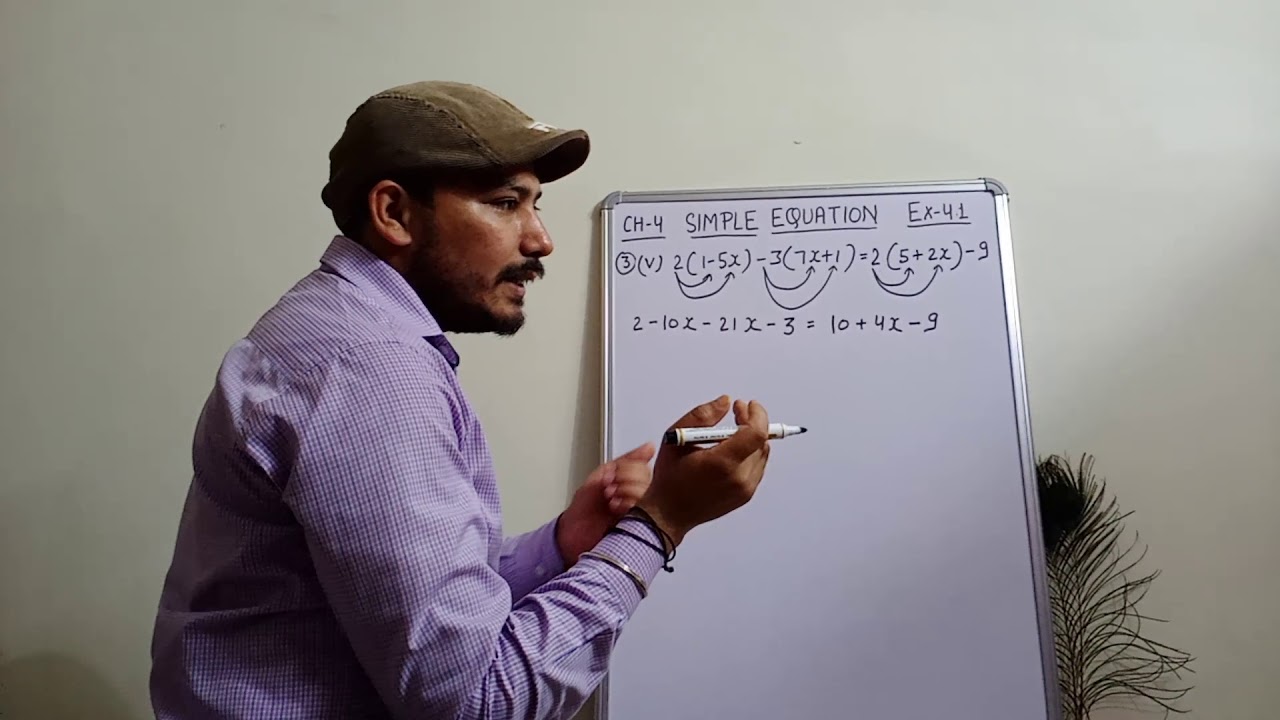 CH-4 SIMPLE EQUATION EX-4.1
③(V) 2(1-5x)-3(7x+1)=2(5+2x)-9
2-10x-21x-3 = 10+4x-9